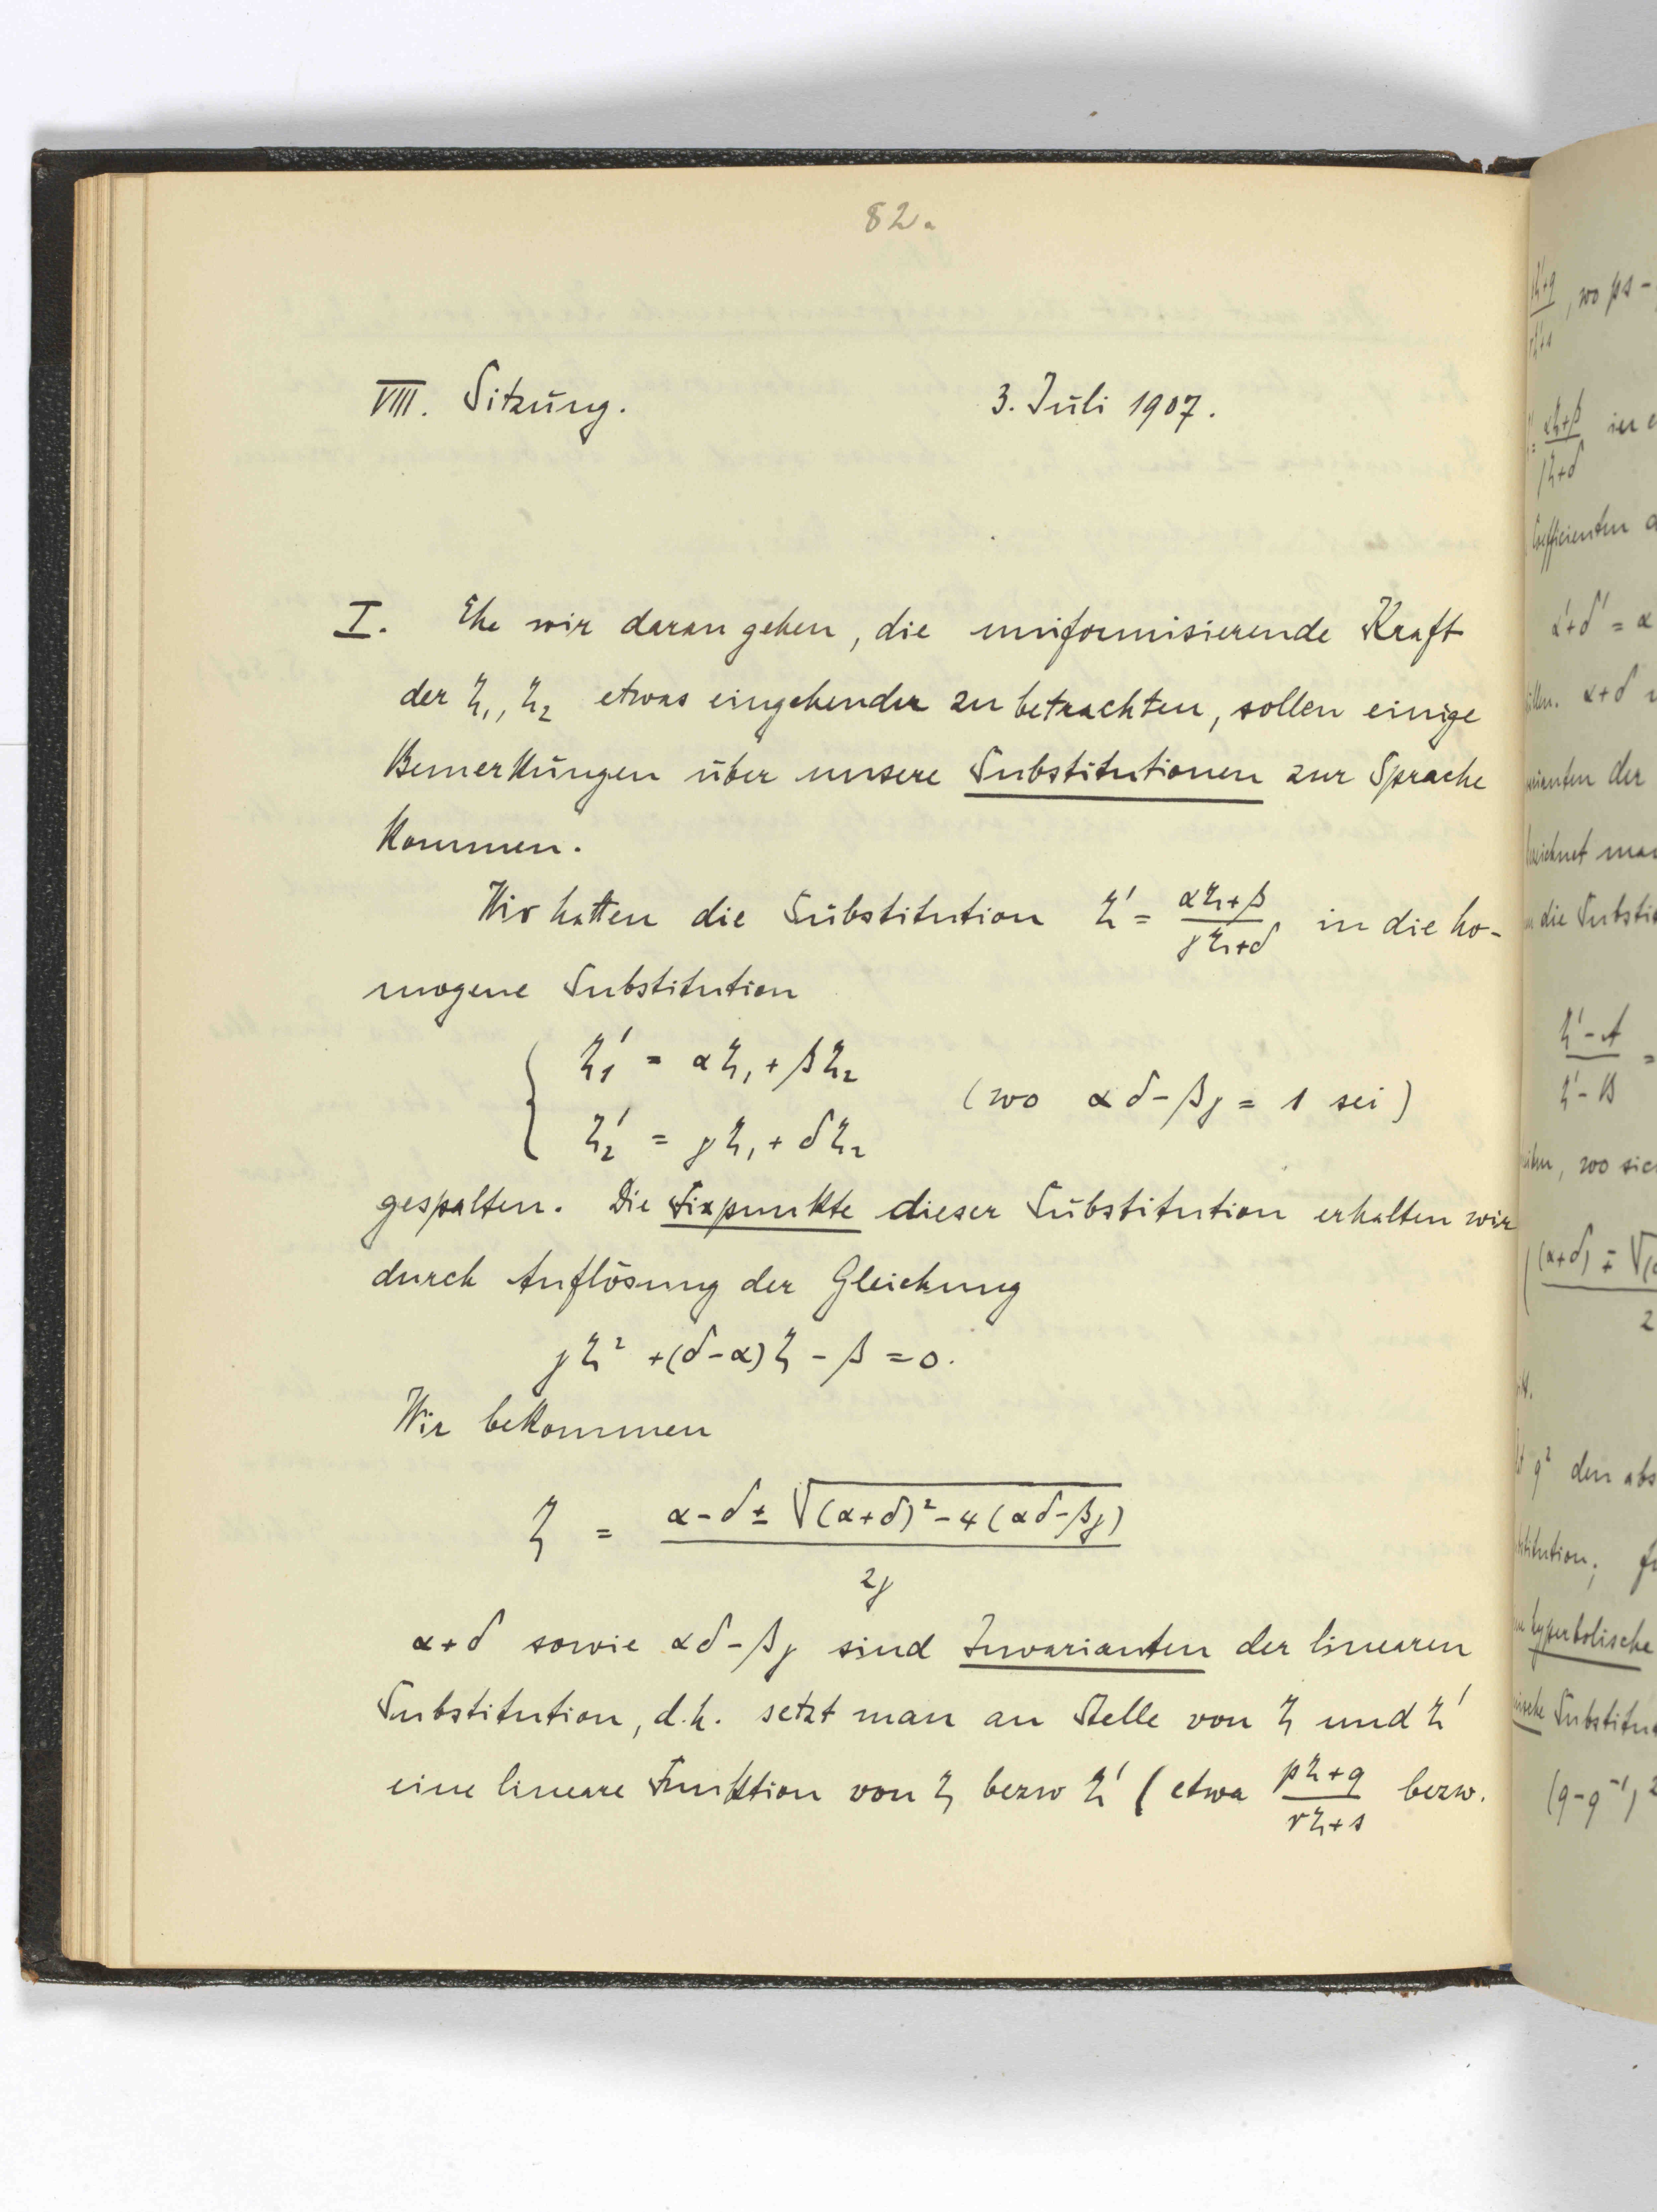 82.
VIII. Sitzung. 3. Juli 1907.
I. Ehe wir daran gehen, die uniformisierende Kraft
der ζ₁, ζ₂ etwas eingehender zu betrachten, sollen einige
Bemerkungen über unsere Substitutionen zur Sprache
kommen.
Wir hatten die Substitution ζ' = (αζ+β)/(γζ+δ) in die ho-
mogene Substitution
ζ₁' = αζ₁ + βζ₂
(wo αδ-βγ = 1 sei)
ζ₂' = γζ₁ + δζ₂
gespalten. Die Fixpunkte dieser Substitution erhalten wir
durch Auflösung der Gleichung
γζ² + (δ-α)ζ - β = 0.
Wir bekommen
ζ = (α-δ ± √((α+δ)² - 4(αδ-βγ)))/2γ
α+δ sowie αδ-βγ sind Invarianten der linearen
Substitution, d.h. setzt man an Stelle von ζ und ζ'
eine lineare Funktion von ζ bezw ζ' (etwa (pζ+q)/(rζ+s) bezw.
, wo ps-
α'+δ' = α
der
die Substi
, wo sic
q² den abs
hyperbolische
Substitu
(q-q⁻¹)²